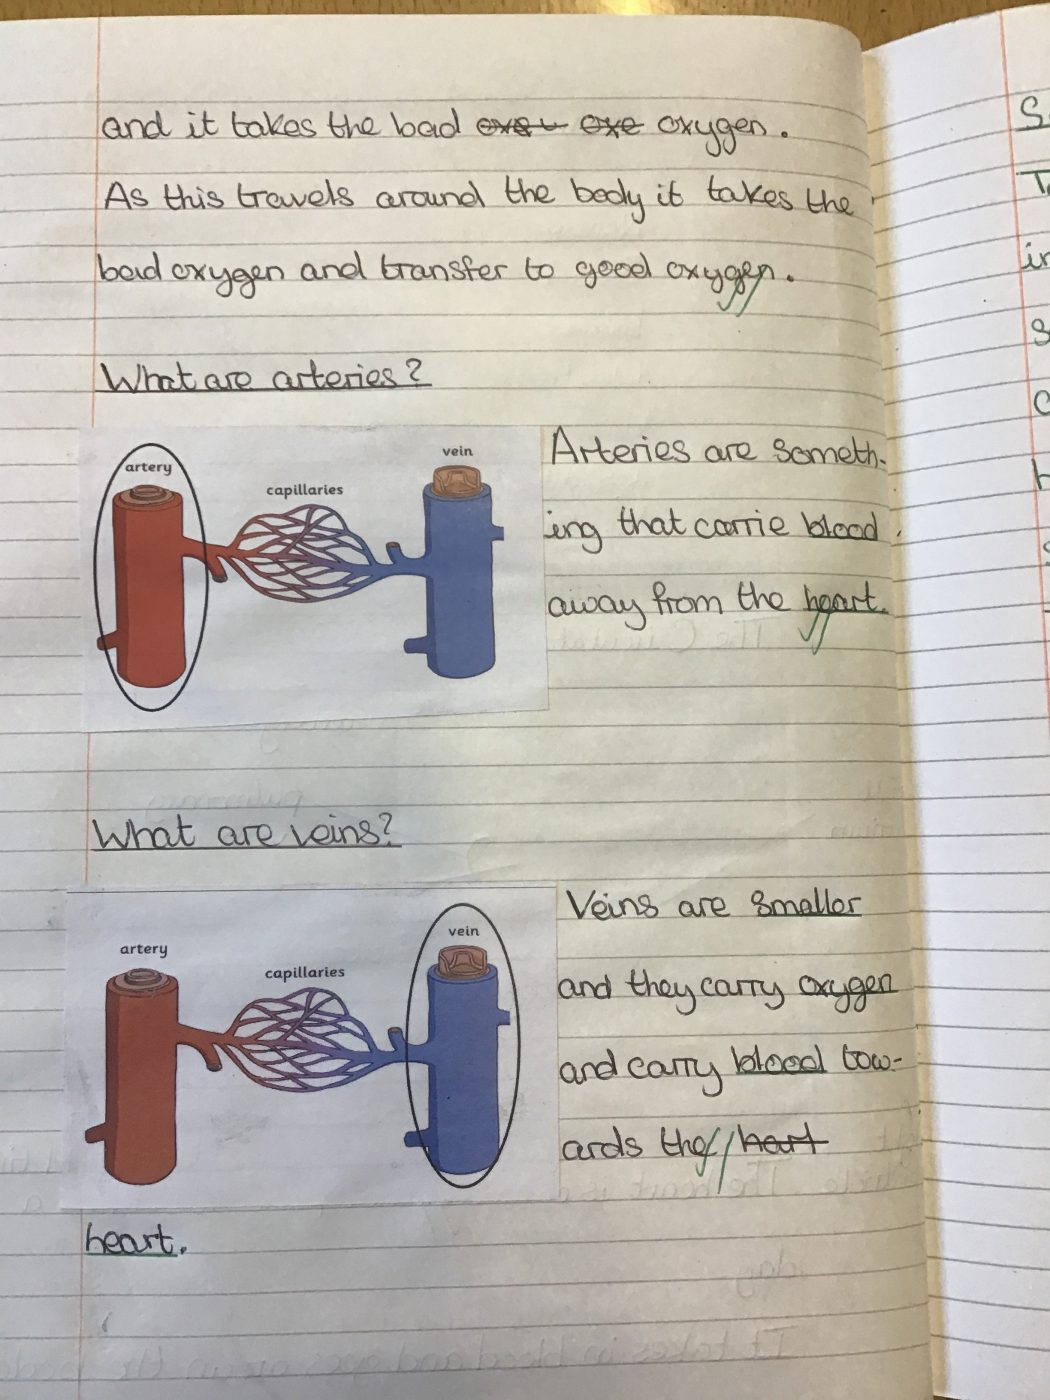 and it takes the bad oxygen.
As this travels around the body it takes the
bad oxygen and transfer to good oxygen.
What are arteries?
artery
capillaries
vein
Arteries are someth-
ing that carrie blood
away from the heart.
What are veins?
artery
capillaries
vein
Veins are smaller
and they carry oxygen
and carry blood tow-
ards the hart
heart.